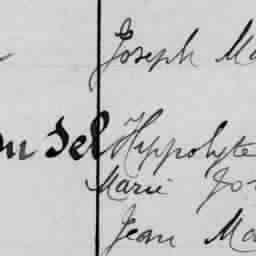 Joseph Ma
du Sel Hippolyte
Marie Jos
Jean Ma